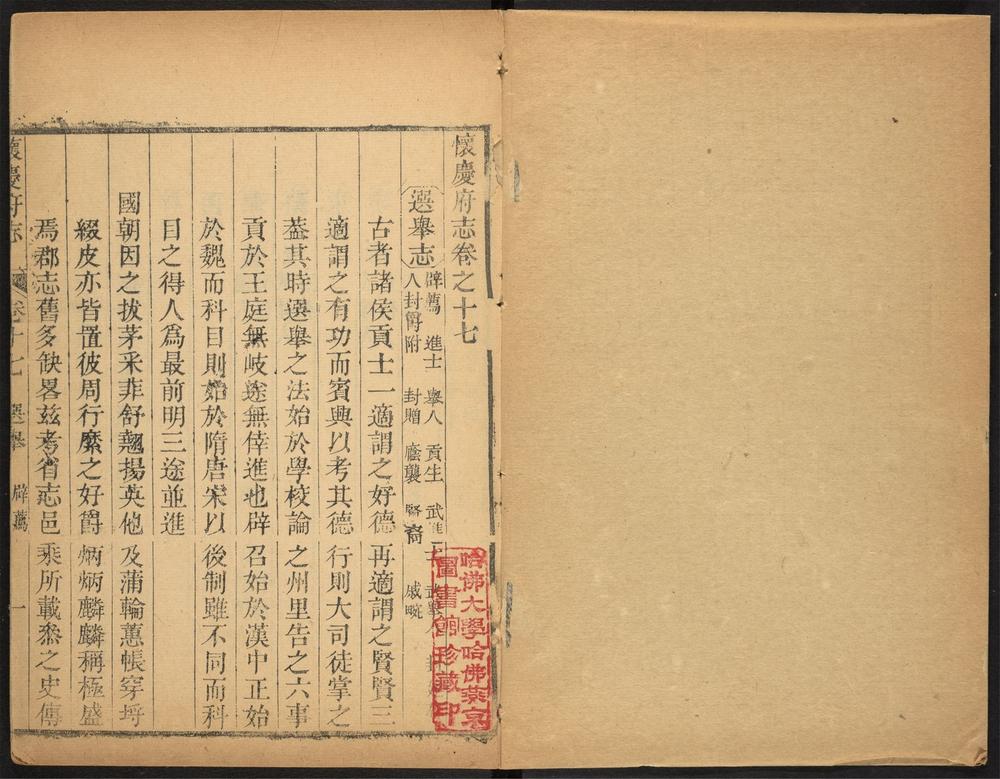 懷慶府志卷之十七
選舉志
辟薦 進士 舉人 貢生 武進士 武舉
人封爵附 封贈 廕襲 賢裔 戚畹
古者諸侯貢士一適謂之好德再適謂之賢賢三
適謂之有功而賓興以考其德行則大司徒掌之
葢其時選舉之法始於學校論之州里告之六事
貢於王庭無岐途無倖進也辟召始於漢中正始
於魏而科目則始於隋唐宋以後制雖不同而科
目之得人爲最前明三途並進
國朝因之拔茅采菲舒翹揚英他及蒲輪蕙帳穿埓
綴皮亦皆寘彼周行縻之好爵炳炳麟麟稱極盛
焉郡志舊多缺畧茲考省志邑乘所載叅之史傳
懷慶府志 卷十七 選舉 辟薦 一
哈佛大學哈佛燕京
圖書館珍藏印